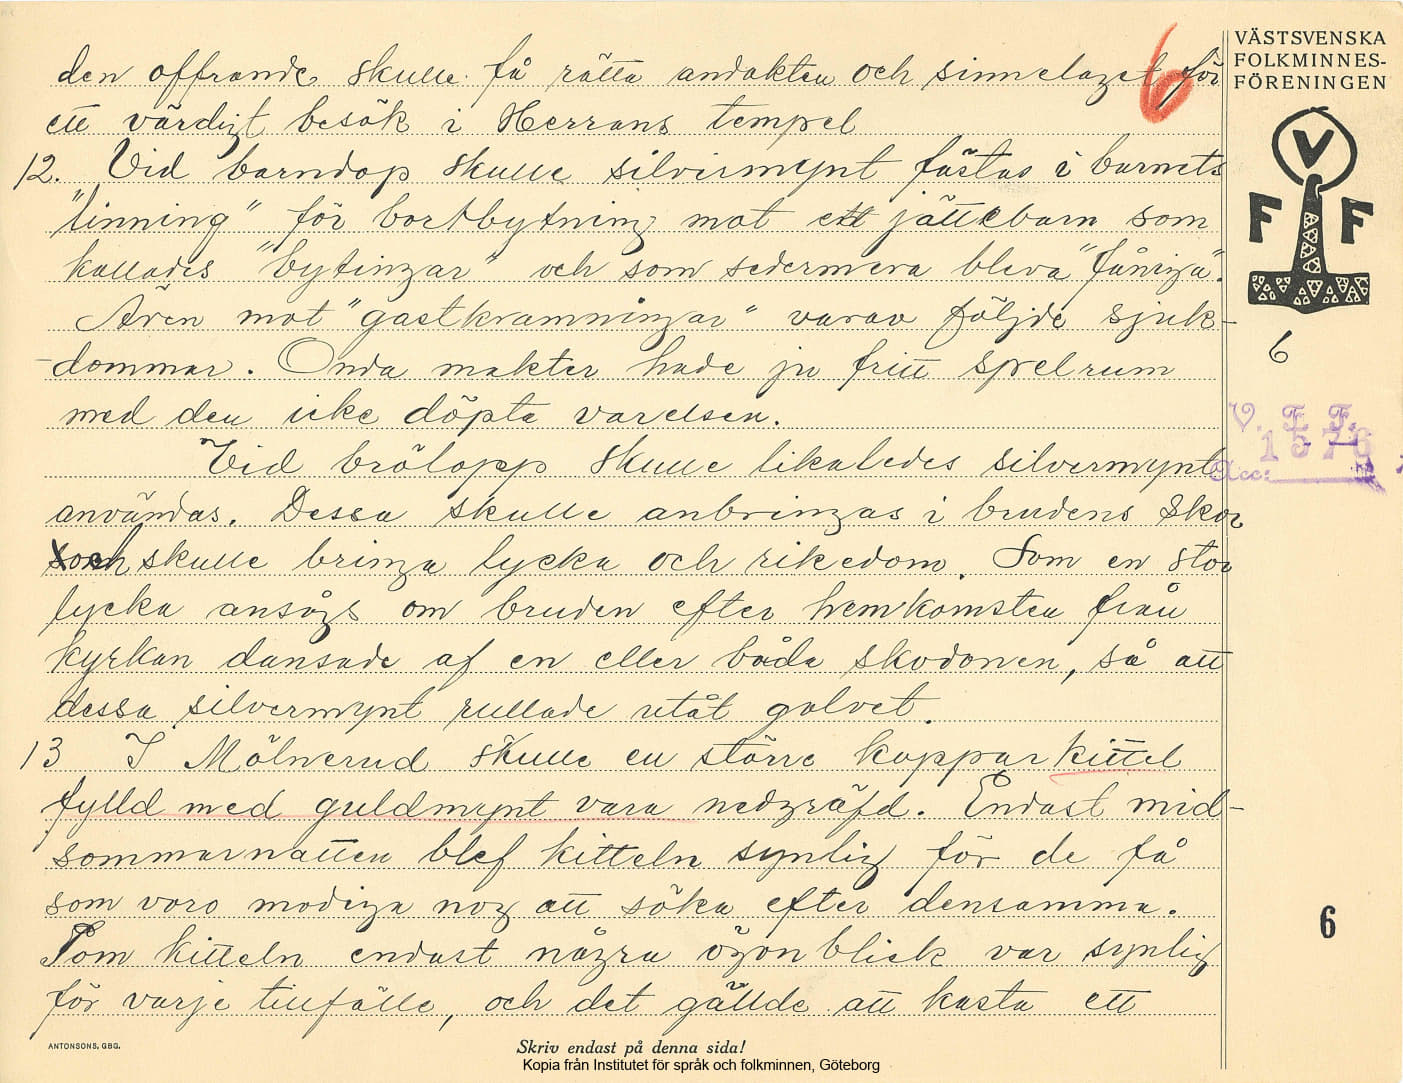 den offrande skulle få rätta andakten och sinnelaget för
ett värdigt besök i Herrans tempel
12. Vid barndop skulle silvermynt fästas i barnets
"linning" för bortbytning mot ett jättebarn som
kallades "bytingar" och som sedermera bleva "fåniga".
Även mot "gastkramningar" varav följde sjuk-
dommar. Onda makter hade ju fritt spelrum
med den icke döpta varelsen.
Vid brölopp skulle likaledes silvermynt
användas. Dessa skulle anbringas i brudens skor
och skulle bringa lycka och rikedom. Som en stor
lycka ansågs om bruden efter hemkomsten från
kyrkan dansade af en eller båda skodonen, så att
dessa silvermynt rullade utåt golvet.
13 I Mölnerud skulle en större kopparkittel
fylld med guldmynt vara nedgräfd. Endast mid-
sommarnatten blef kitteln synlig för de få
som voro modiga nog att söka efter densamma.
Som kitteln endast några ögonblick var synlig
för varje tillfälle, och det gällde att kasta ett
6
VÄSTSVENSKA
FOLKMINNES-
FÖRENINGEN
V
F F
6
V. F. F.
1576
Acc:
6
ANTONSONS, GBG.
Skriv endast på denna sida!
Kopia från Institutet för språk och folkminnen, Göteborg